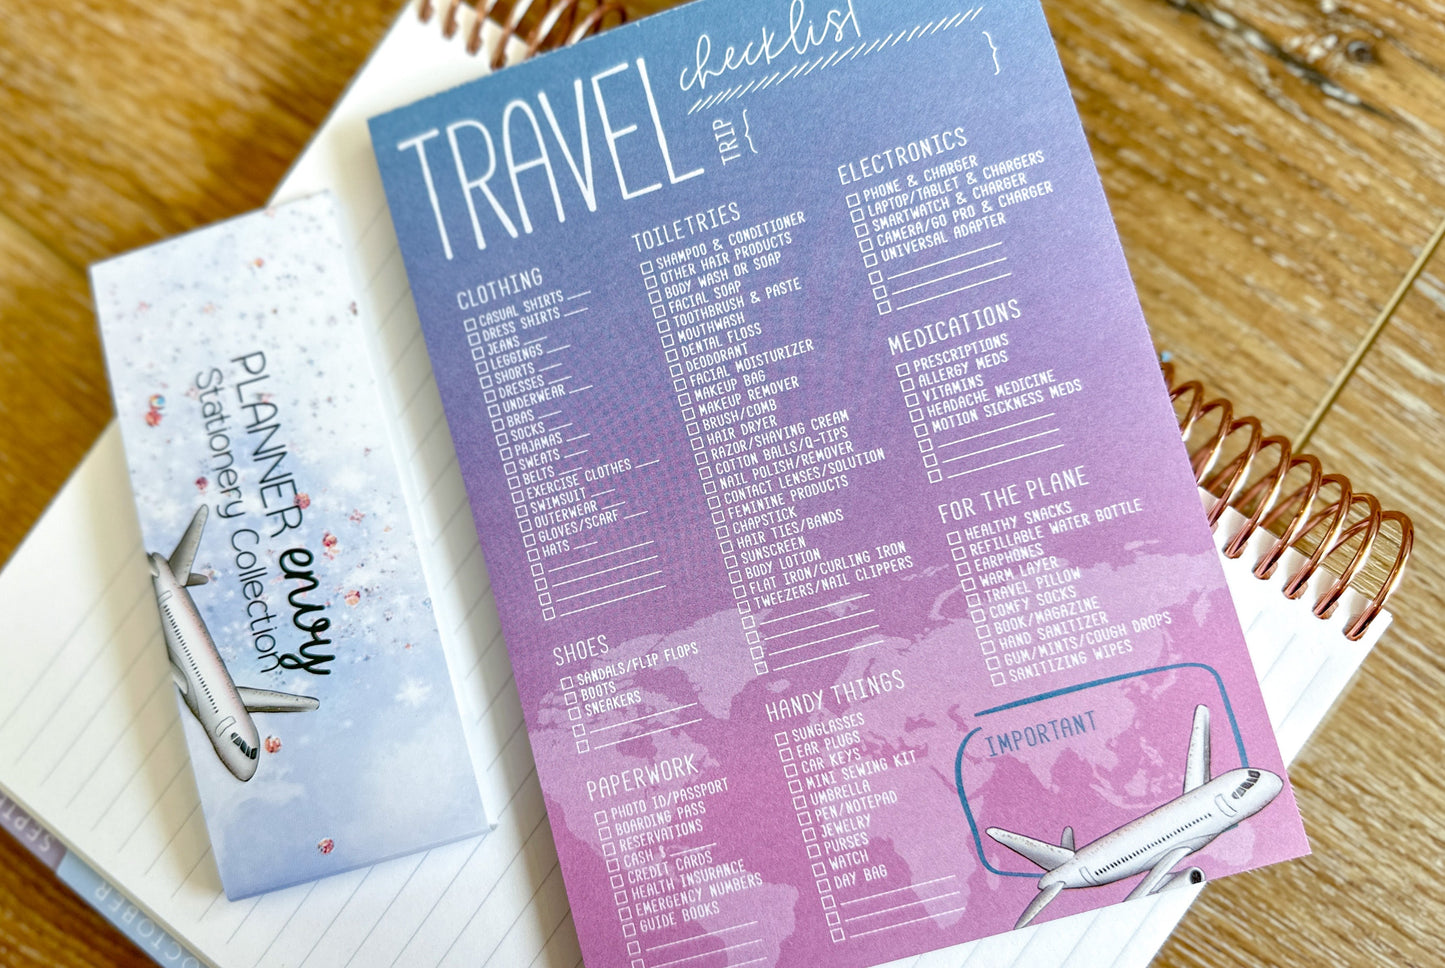 TRAVEL
checklist
TRIP { }
CLOTHING
CASUAL SHIRTS
DRESS SHIRTS
JEANS
LEGGINGS
SHORTS
DRESSES
UNDERWEAR
BRAS
SOCKS
PAJAMAS
SWEATS
BELTS
EXERCISE CLOTHES
SWIMSUIT
OUTERWEAR
GLOVES/SCARF
HATS
SHOES
SANDALS/FLIP FLOPS
BOOTS
SNEAKERS
PAPERWORK
PHOTO ID/PASSPORT
BOARDING PASS
RESERVATIONS
CASH $
CREDIT CARDS
HEALTH INSURANCE
EMERGENCY NUMBERS
GUIDE BOOKS
TOILETRIES
SHAMPOO & CONDITIONER
OTHER HAIR PRODUCTS
BODY WASH OR SOAP
FACIAL SOAP
TOOTHBRUSH & PASTE
MOUTHWASH
DENTAL FLOSS
DEODORANT
FACIAL MOISTURIZER
MAKEUP BAG
MAKEUP REMOVER
BRUSH/COMB
HAIR DRYER
RAZOR/SHAVING CREAM
COTTON BALLS/Q-TIPS
NAIL POLISH/REMOVER
CONTACT LENSES/SOLUTION
FEMININE PRODUCTS
CHAPSTICK
HAIR TIES/BANDS
SUNSCREEN
BODY LOTION
FLAT IRON/CURLING IRON
TWEEZERS/NAIL CLIPPERS
HANDY THINGS
SUNGLASSES
EAR PLUGS
CAR KEYS
MINI SEWING KIT
UMBRELLA
PEN/NOTEPAD
JEWELRY
PURSES
WATCH
DAY BAG
ELECTRONICS
PHONE & CHARGER
LAPTOP/TABLET & CHARGERS
SMARTWATCH & CHARGER
CAMERA/GO PRO & CHARGER
UNIVERSAL ADAPTER
MEDICATIONS
PRESCRIPTIONS
ALLERGY MEDS
VITAMINS
HEADACHE MEDICINE
MOTION SICKNESS MEDS
FOR THE PLANE
HEALTHY SNACKS
REFILLABLE WATER BOTTLE
EARPHONES
WARM LAYER
TRAVEL PILLOW
COMFY SOCKS
BOOK/MAGAZINE
HAND SANITIZER
GUM/MINTS/COUGH DROPS
SANITIZING WIPES
IMPORTANT
PLANNER envy
Stationery Collection
SEPT
OCTOBER